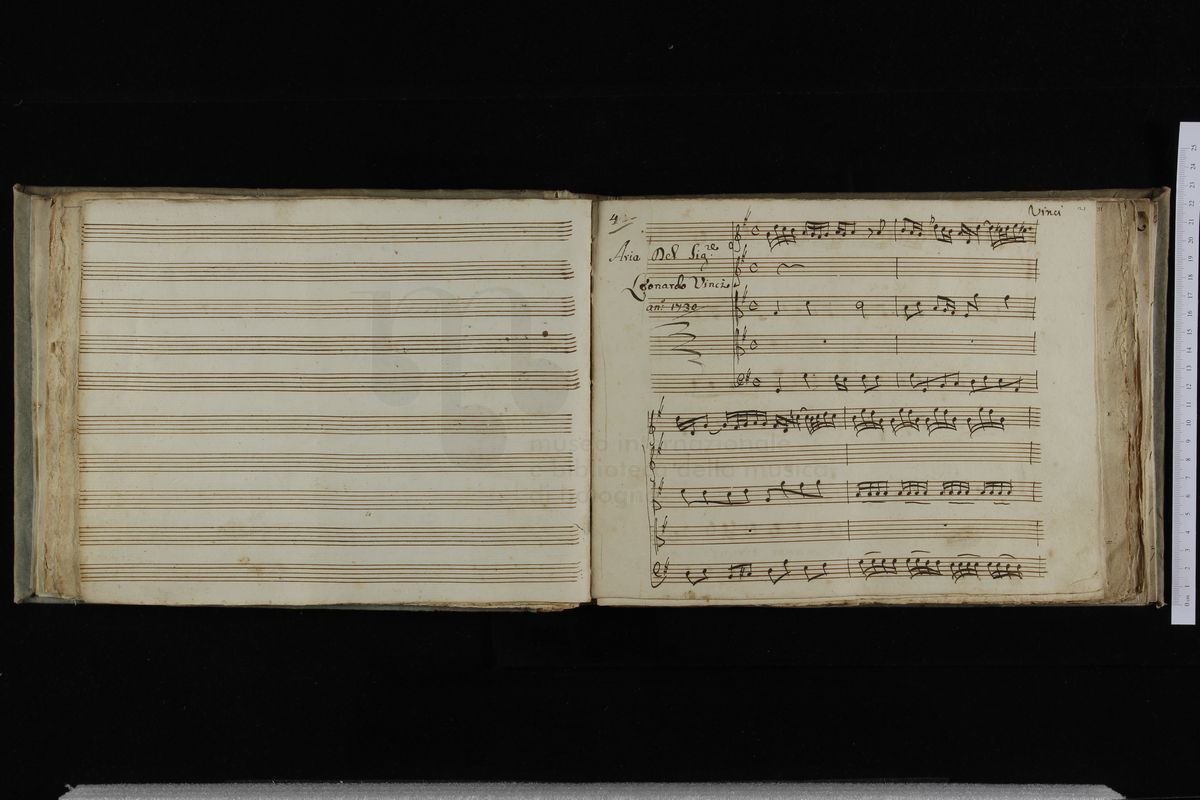 4
Vinci
Aria Del Sig.re
Leonardo Vinci
an: 1730
museo internazionale
e biblioteca della musica
di bologna